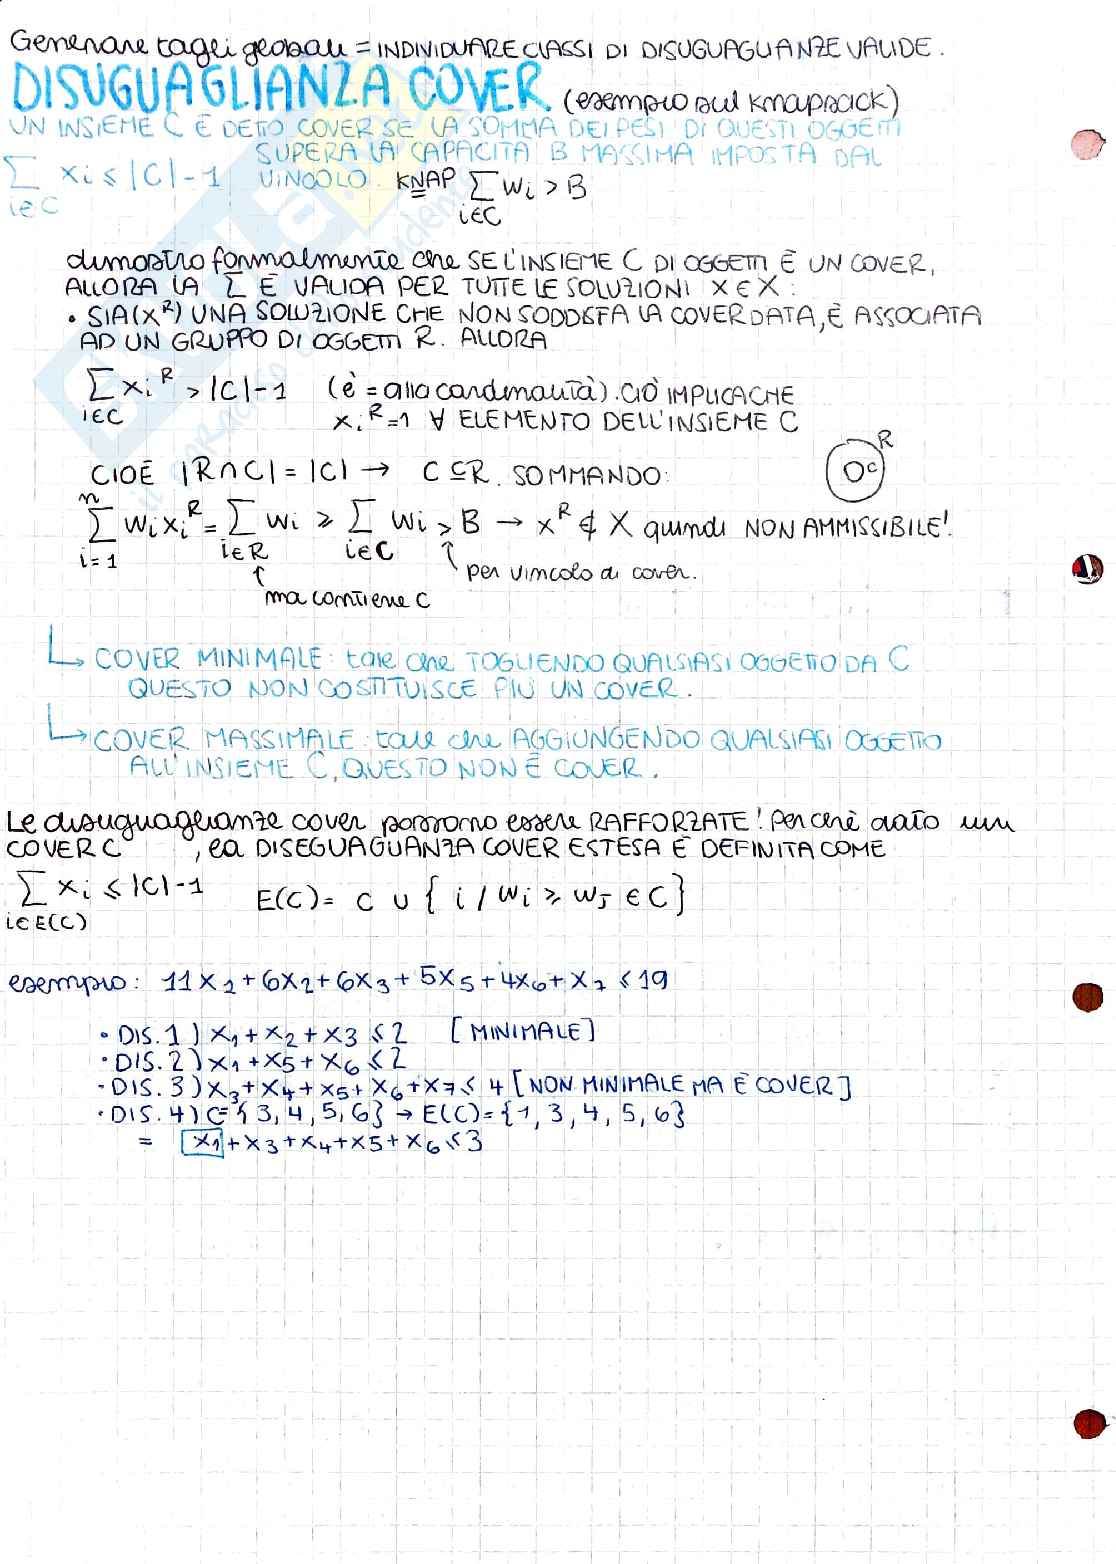 Generare tagli globali = INDIVIDUARE CLASSI DI DISUGUAGLIANZE VALIDE.
DISUGUAGLIANZA COVER. (esempio sul knapsack)
UN INSIEME C È DETTO COVER SE LA SOMMA DEI PESI DI QUESTI OGGETTI
SUPERA LA CAPACITÀ B MASSIMA IMPOSTA DAL
∑ xi ≤ |C|-1 VINCOLO. KNAP ∑ wi > B
i∈C i∈C
dimostro formalmente che SE L'INSIEME C DI OGGETTI È UN COVER,
ALLORA LA ∑ È VALIDA PER TUTTE LE SOLUZIONI X ∈ X:
• SIA (X^R) UNA SOLUZIONE CHE NON SODDISFA LA COVER DATA, È ASSOCIATA
AD UN GRUPPO DI OGGETTI R. ALLORA
∑ xi^R > |C|-1 (è = alla cardinalità). CIÒ IMPLICA CHE
i∈C xi^R=1 ∀ ELEMENTO DELL'INSIEME C
CIOÈ |R∩C| = |C| → C ⊆ R. SOMMANDO: R
C
n
∑ wi xi^R = ∑ wi ≥ ∑ wi > B → x^R ∉ X quindi NON AMMISSIBILE!
i=1 i∈R i∈C
↑ per vincolo di cover.
↑ ma contiene C
↳ COVER MINIMALE: tale che TOGLIENDO QUALSIASI OGGETTO DA C
QUESTO NON COSTITUISCE PIÙ UN COVER.
↳ COVER MASSIMALE: tale che AGGIUNGENDO QUALSIASI OGGETTO
ALL'INSIEME C, QUESTO NON È COVER.
Le disuguaglianze cover possono essere RAFFORZATE! Perché dato un
COVER C , la DISEGUAGLIANZA COVER ESTESA È DEFINITA COME
∑ xi ≤ |C|-1 E(C) = C ∪ { i / wi ≥ wj ∈ C }
i∈E(C)
esempio: 11x1 + 6x2 + 6x3 + 5x5 + 4x6 + x7 ≤ 19
• DIS. 1) x1 + x2 + x3 ≤ 2 [MINIMALE]
• DIS. 2) x1 + x5 + x6 ≤ 2
• DIS. 3) x3 + x4 + x5 + x6 + x7 ≤ 4 [NON MINIMALE MA È COVER]
• DIS. 4) C = {3, 4, 5, 6} → E(C) = {1, 3, 4, 5, 6}
= x1 + x3 + x4 + x5 + x6 ≤ 3